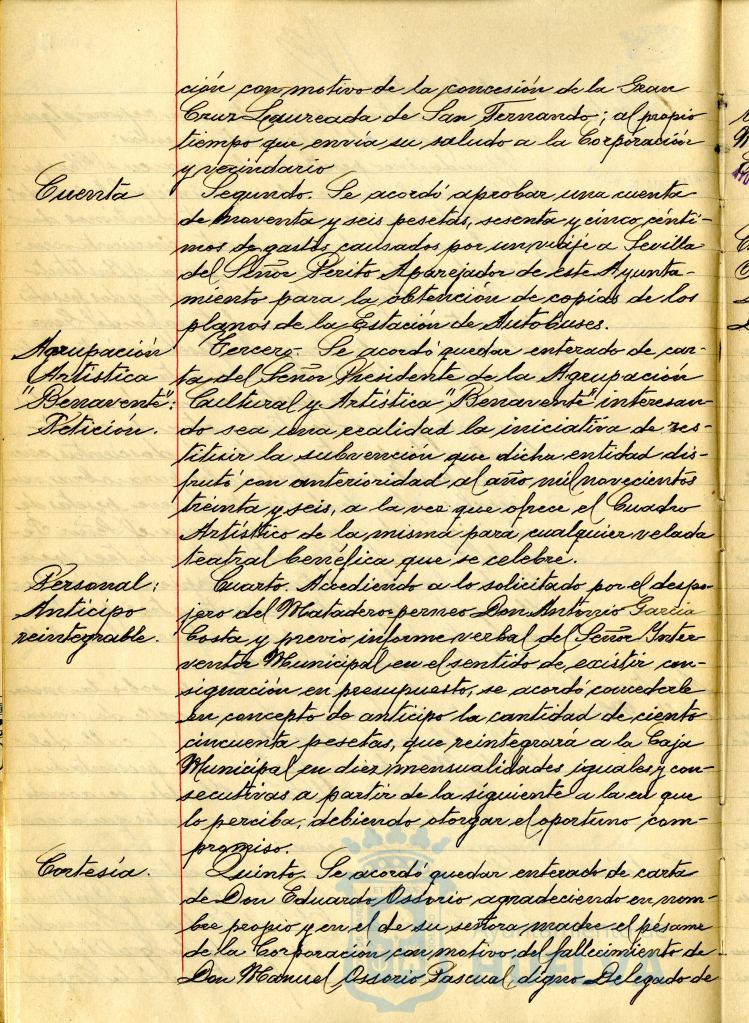 ción con motivo de la concesión de la Gran
Cruz Laureada de San Fernando; al propio
tiempo que envía su saludo a la Corporación
y vecindario
Cuenta
Segundo. Se acordó aprobar una cuenta
de noventa y seis pesetas, sesenta y cinco cénti-
mos de gastos causados por un viaje a Sevilla
del Señor Perito Aparejador de este Ayunta-
miento para la obtención de copias de los
planos de la Estación de Autobuses.
Agrupación
Artística
"Benavente":
Petición.
Tercero. Se acordó quedar enterado de car-
ta del Señor Presidente de la Agrupación
Cultural y Artística "Benavente" interesan-
do sea una realidad la iniciativa de res-
titisir la subvención que dicha entidad dis-
frutó con anterioridad al año mil novecientos
treinta y seis, a la vez que ofrece el Cuadro
Artístico de la misma para cualquier velada
teatral benéfica que se celebre.
Personal:
Anticipo
reintegrable.
Cuarto. Accediendo a lo solicitado por el despo-
jero del Matadero perneo Don Antonio García
Costa y previo informe verbal del Señor Inter
ventor Municipal en el sentido de existir con-
signación en presupuesto, se acordó concederle
en concepto de anticipo la cantidad de ciento
cincuenta pesetas, que reintegrará a la Caja
Municipal en diez mensualidades iguales y con-
secutivas a partir de la siguiente a la en que
lo perciba, debiendo otorgar el oportuno com-
promiso.
Cortesía.
Quinto. Se acordó quedar enterado de carta
de Don Eduardo Ossorio agradeciendo en nom-
bre propio y en el de su señora madre el pésame
de la Corporación con motivo del fallecimiento de
Don Manuel Ossorio Pascual, digno Delegado de